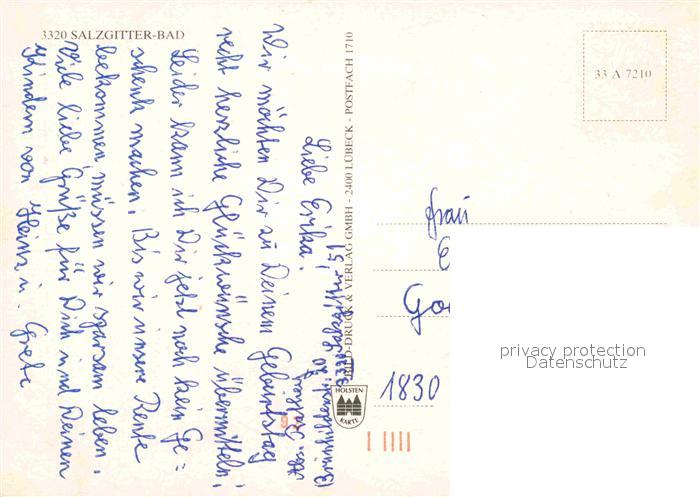 3320 SALZGITTER-BAD
33 A 7210
BILD-DRUCK & VERLAG GMBH - 2400 LÜBECK - POSTFACH 1710
HOLSTEN
KARTE
3320 Salzgitter 51
Liebe Erika!
Wir möchten Dir zu Deinem Geburtstag
recht herzliche Glückwünsche übermitteln,
Leider kann ich Dir jetzt noch kein Ge=
schenk machen. Bis wir unsere Rente
bekommen müssen wir sparsam leben.
Viele liebe Grüße für Dich und Deinen
Kindern von Heinz u. Grete
Frau
E
Go
1830
privacy protection
Datenschutz